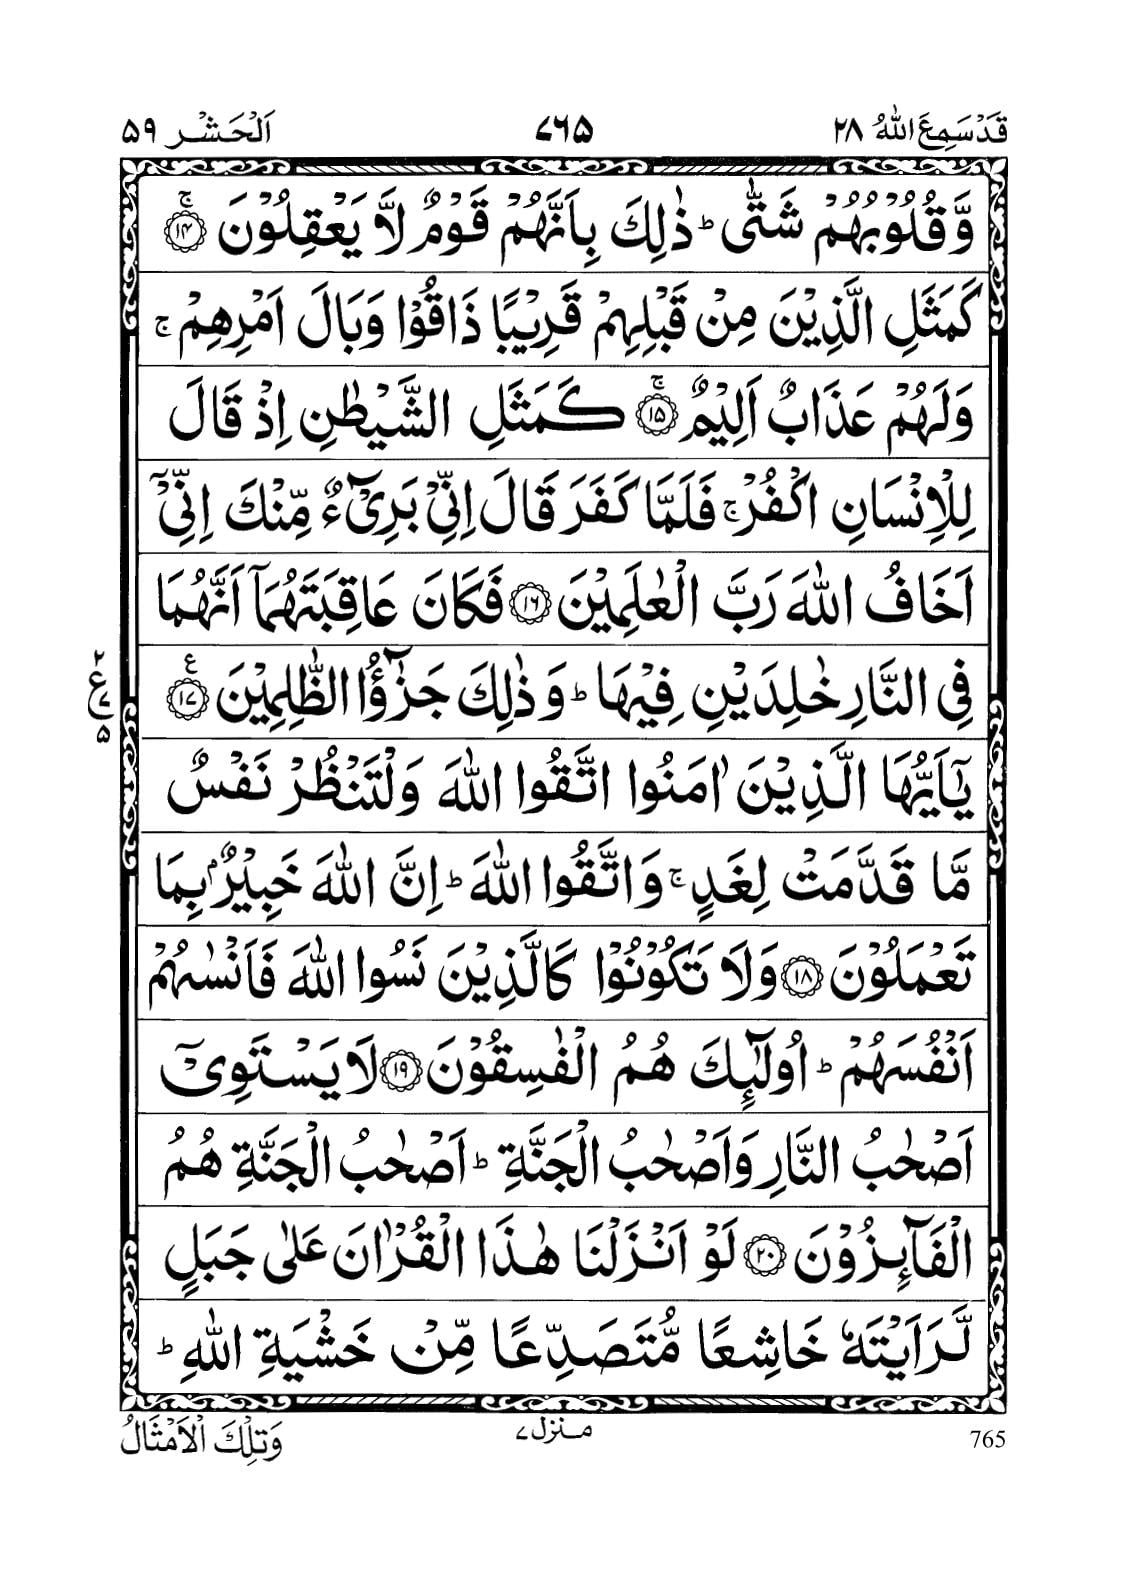 قَدْ سَمِعَ اللّٰهُ ۲۸ ۷۶۵ اَلْحَشْر ۵۹
وَّ قُلُوْبُهُمْ شَتّٰى ؕ ذٰلِكَ بِاَنَّهُمْ قَوْمٌ لَّا يَعْقِلُوْنَ ۚ ۱۴
كَمَثَلِ الَّذِيْنَ مِنْ قَبْلِهِمْ قَرِيْبًا ذَاقُوْا وَبَالَ اَمْرِهِمْ ۚ
وَلَهُمْ عَذَابٌ اَلِيْمٌ ۚ ۱۵ كَمَثَلِ الشَّيْطٰنِ اِذْ قَالَ
لِلْاِنْسَانِ اكْفُرْ ۚ فَلَمَّا كَفَرَ قَالَ اِنِّىْ بَرِىْٓءٌ مِّنْكَ اِنِّىْٓ
اَخَافُ اللّٰهَ رَبَّ الْعٰلَمِيْنَ ۱۶ فَكَانَ عَاقِبَتَهُمَاۤ اَنَّهُمَا
فِى النَّارِ خٰلِدَيْنِ فِيْهَا ؕ وَذٰلِكَ جَزٰٓؤُا الظّٰلِمِيْنَ ۱۷ ع
ع ۲ ۷ ۵
يٰۤاَيُّهَا الَّذِيْنَ اٰمَنُوا اتَّقُوا اللّٰهَ وَلْتَنْظُرْ نَفْسٌ
مَّا قَدَّمَتْ لِغَدٍ ۚ وَاتَّقُوا اللّٰهَ ؕ اِنَّ اللّٰهَ خَبِيْرٌۢ بِمَا
تَعْمَلُوْنَ ۱۸ وَلَا تَكُوْنُوْا كَالَّذِيْنَ نَسُوا اللّٰهَ فَاَنْسٰىهُمْ
اَنْفُسَهُمْ ؕ اُولٰٓئِكَ هُمُ الْفٰسِقُوْنَ ۱۹ لَا يَسْتَوِىْٓ
اَصْحٰبُ النَّارِ وَاَصْحٰبُ الْجَنَّةِ ؕ اَصْحٰبُ الْجَنَّةِ هُمُ
الْفَآئِزُوْنَ ۲۰ لَوْ اَنْزَلْنَا هٰذَا الْقُرْاٰنَ عَلٰى جَبَلٍ
لَّرَاَيْتَهٗ خَاشِعًا مُّتَصَدِّعًا مِّنْ خَشْيَةِ اللّٰهِ ؕ
765 منزل ۷ وَتِلْكَ الْاَمْثَالُ